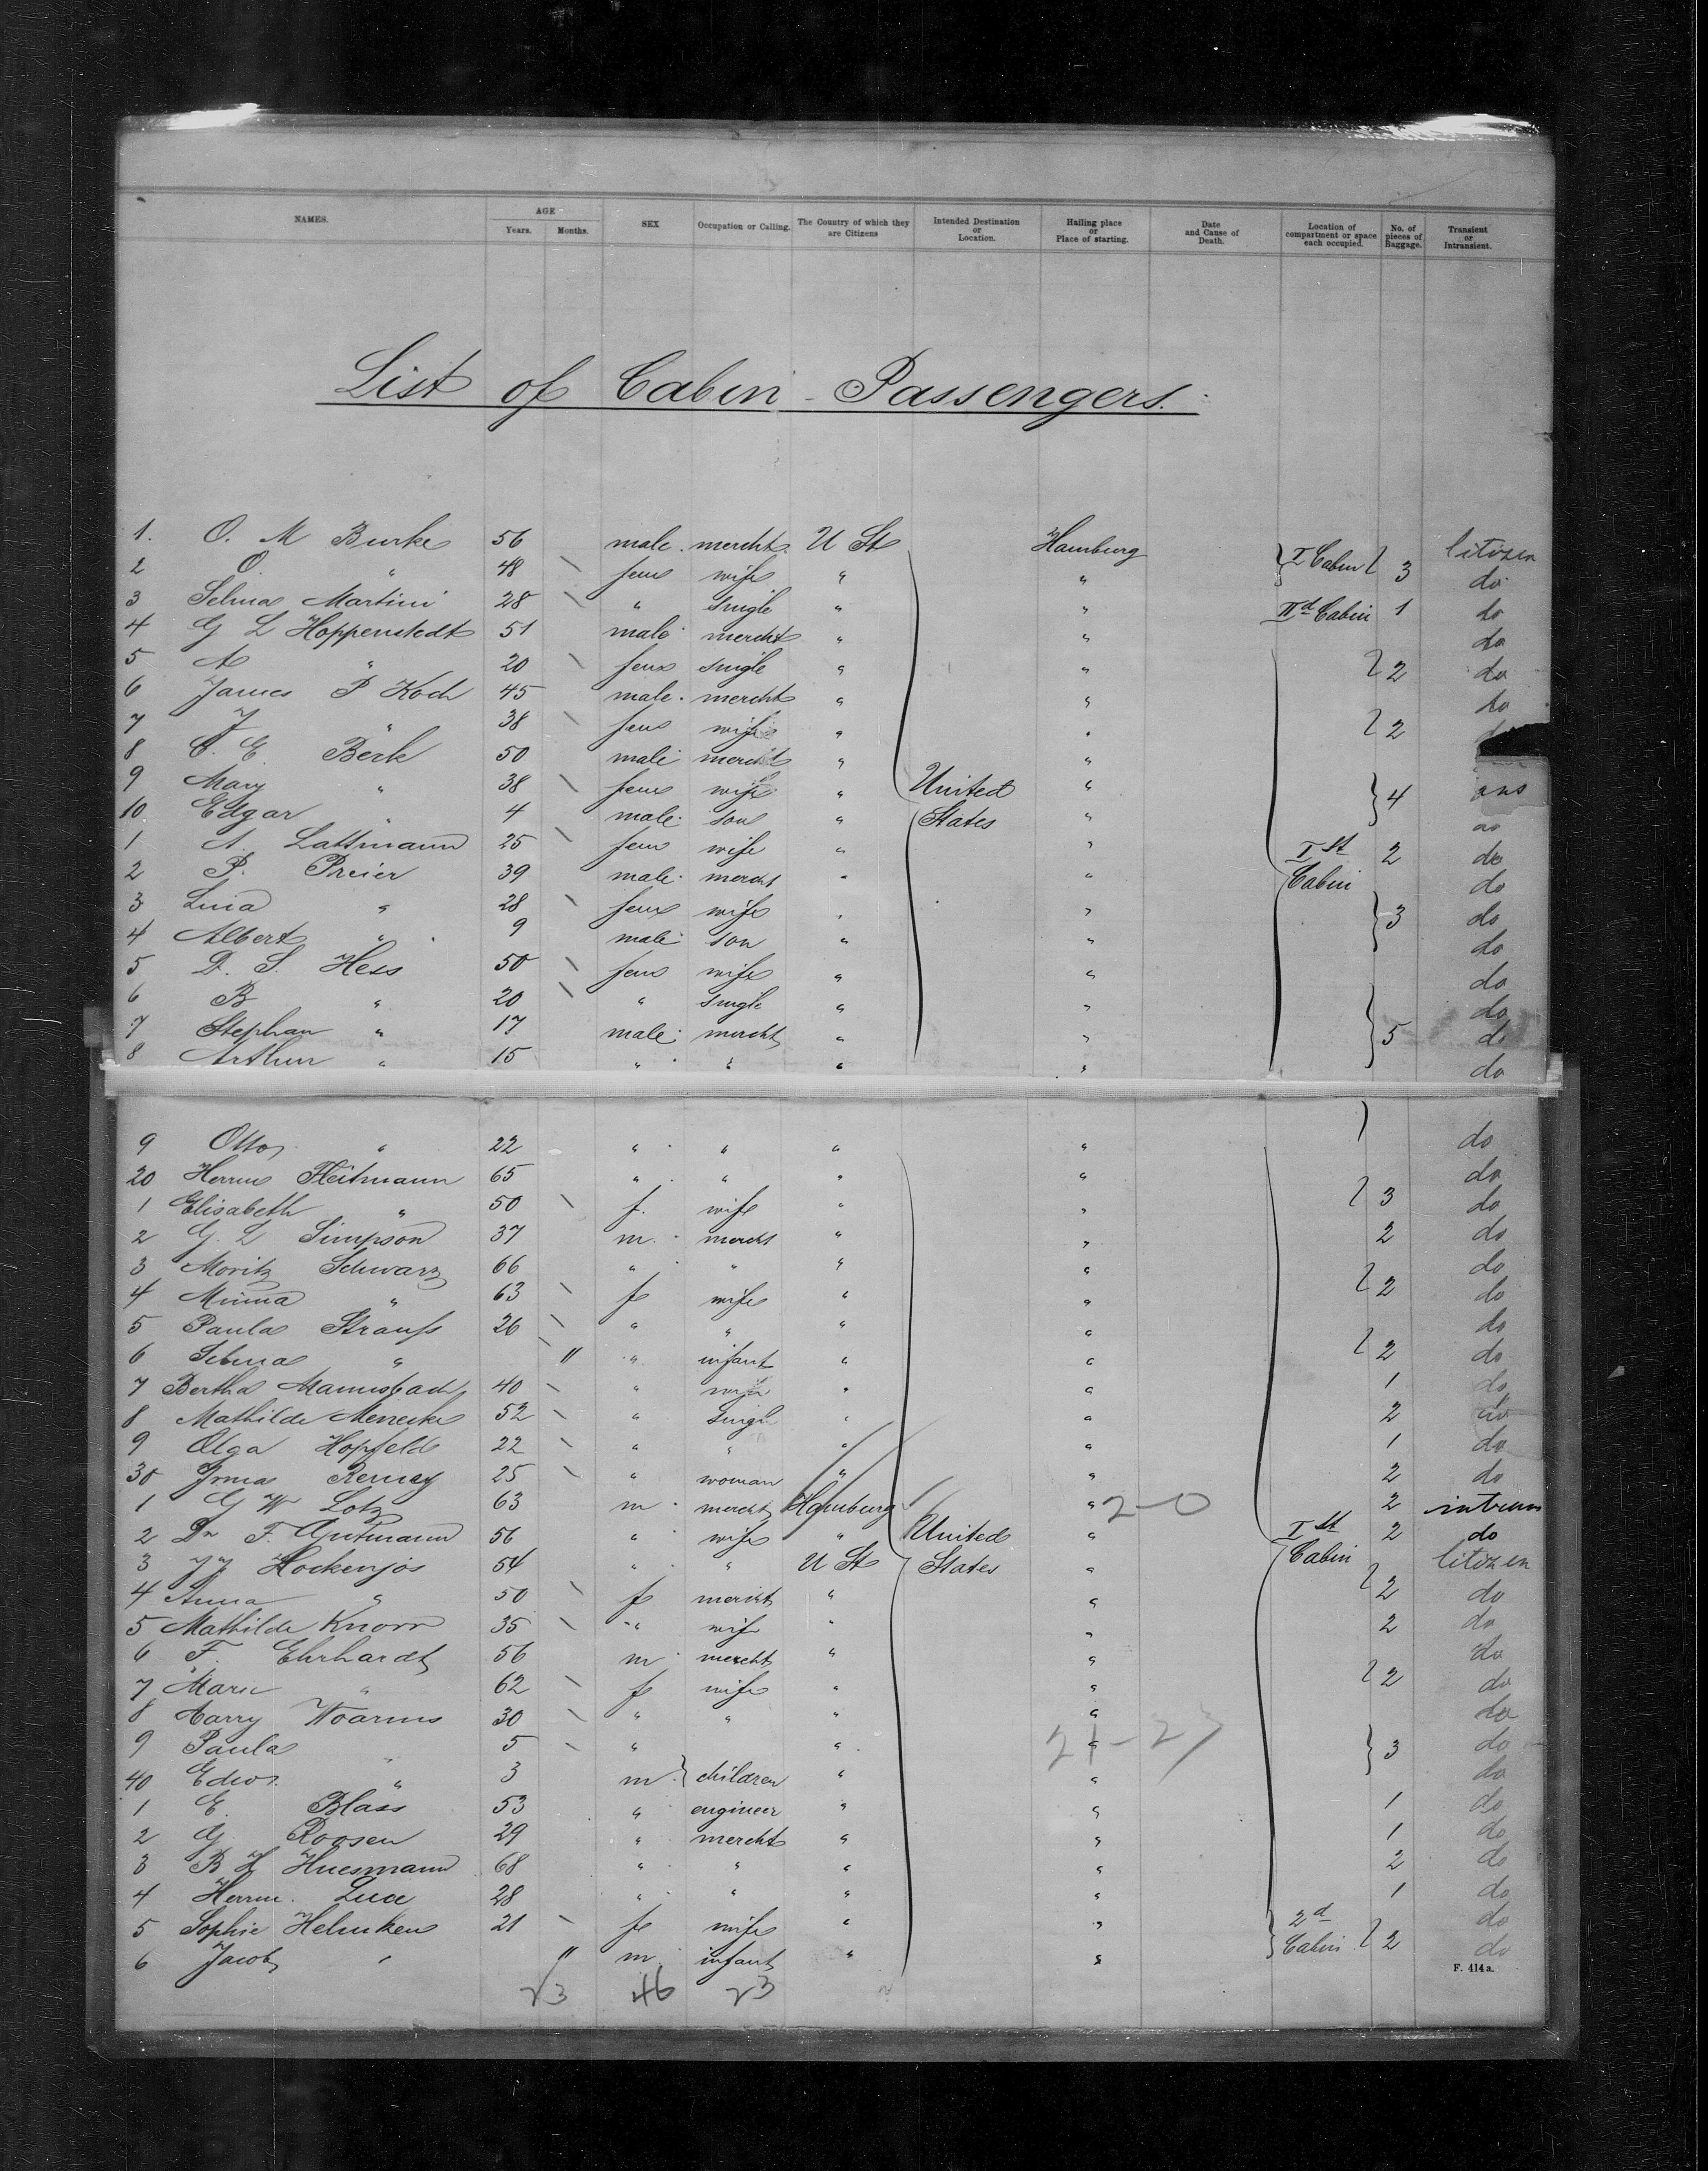 NAMES. AGE Years. Months. SEX Occupation or Calling. The Country of which they are Citizens Intended Destination or Location. Hailing place or Place of starting. Date and Cause of Death. Location of compartment or space each occupied. No. of pieces of Baggage. Transient or Intransient.
List of Cabin Passengers.
1. O. M Burke 56 male. mercht. U St Hamburg I Cabin 3 Citizen
2 O. " 48 \ fem wife " " do
3 Selma Martini 28 \ " single " " IId Cabin 1 do
4 G L Hoppenstedt 51 male mercht " " do
5 A " 20 \ fem single " " 2 do
6 James P Koch 45 male. mercht " " do
7 J " 38 \ fem wife " " 2
8 C. E. Berk 50 male mercht " "
9 Mary " 38 \ fem wife " United " 4
10 Edgar " 4 male. son " States " do
1 A. Lattmann 25 \ fem wife " " Ist 2 do
2 P. Preier 39 male. mercht " " Cabin do
3 Lina " 28 \ fem wife " " 3 do
4 Albert " 9 male son " " do
5 D. S. Hess 50 \ fem wife " " do
6 B " 20 \ " single " " do
7 Stephan " 17 male. mercht " " 5 do
8 Arthur " 15 " " " " do
9 Otto " 22 " " " " do
20 Herrm Fleitmann 65 " " " " do
1 Elisabeth " 50 \ f. wife " " 3 do
2 G. L Simpson 37 m. mercht " " 2 do
3 Moritz Schwarz 66 " " " " do
4 Minna " 63 \ f wife " " 2 do
5 Paula Strauß 26 \ " " " " do
6 Selma " 11 " infant " " 2 do
7 Bertha 40 \ " wife " " 1 do
8 Mathilde Menecke 52 \ " single " " 2 do
9 Olga Hopfeld 22 \ " " " " 1 do
30 Irma 25 \ " woman " " 2 do
1 G W Lotz 63 m mercht Hamburg " 2-0 2 intrans
2 Dr F. 56 " wife " United " Ist 2 do
3 J J Hockenjos 54 " " U St States " Cabin Citizen
4 Anna " 50 \ f mercht " " 2 do
5 Mathilde Knorr 35 \ " wife " " 2 do
6 F. Ehrhardt 56 m mercht " " do
7 Marie " 62 \ f wife " " 2 do
8 Carry Woarms 30 \ " " " " do
9 Paula " 5 \ " " " 3 do
40 Edw. " 3 m children " " do
1 E. Blass 53 " engineer " " 1 do
2 G Roosen 29 " mercht " " 1 do
3 B H Huesmann 68 " " " " 2 do
4 Herrm. Lux 28 " " " " 1 do
5 Sophie Helmken 21 \ f wife " " 2d do
6 Jacob " 11 m infant " " Cabin 2 do
F. 414a.
23 46 23